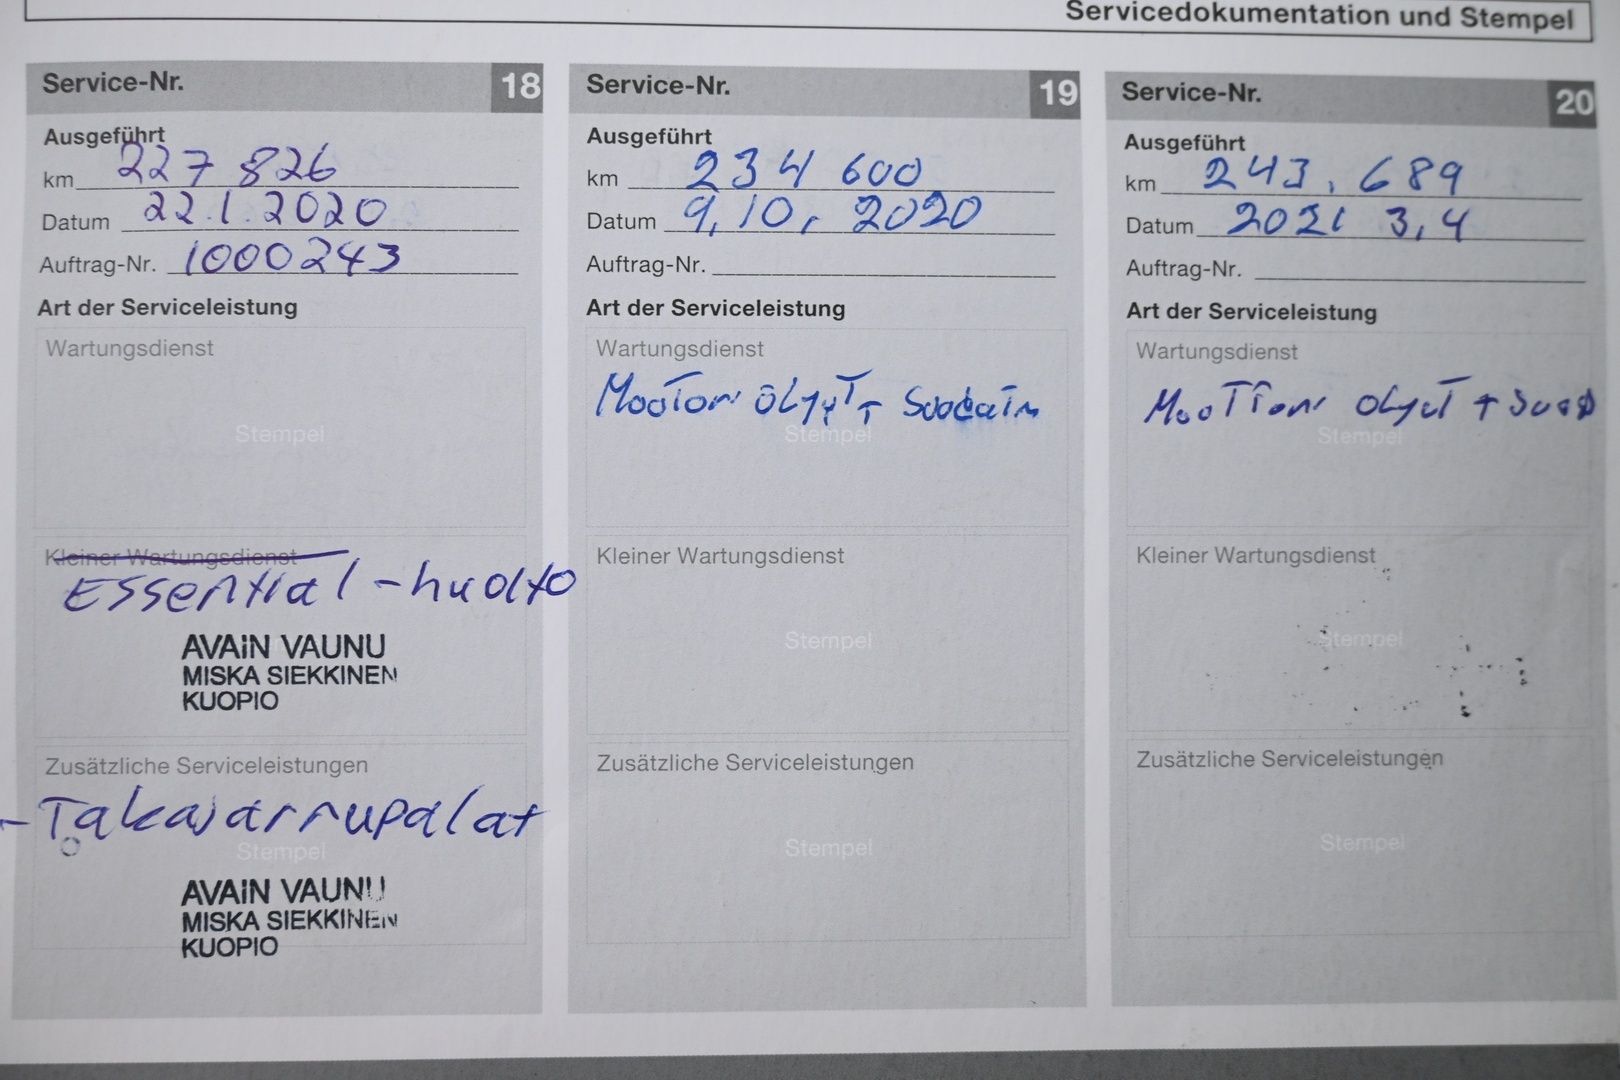 Servicedokumentation und Stempel
Service-Nr. 18
Ausgeführt
km 227 826
Datum 22.1.2020
Auftrag-Nr. 1000243
Art der Serviceleistung
Wartungsdienst
Stempel
Kleiner Wartungsdienst
Essential-huolto
AVAIN VAUNU
MISKA SIEKKINEN
KUOPIO
Zusätzliche Serviceleistungen
-Takajarrupalat
Stempel
AVAIN VAUNU
MISKA SIEKKINEN
KUOPIO
Service-Nr. 19
Ausgeführt
km 234 600
Datum 9,10, 2020
Auftrag-Nr.
Art der Serviceleistung
Wartungsdienst
Mootori öLyyT +
Stempel
Kleiner Wartungsdienst
Stempel
Zusätzliche Serviceleistungen
Stempel
Service-Nr. 20
Ausgeführt
km 243, 689
Datum 2021 3,4
Auftrag-Nr.
Art der Serviceleistung
Wartungsdienst
Stempel
Kleiner Wartungsdienst
Stempel
Zusätzliche Serviceleistungen
Stempel